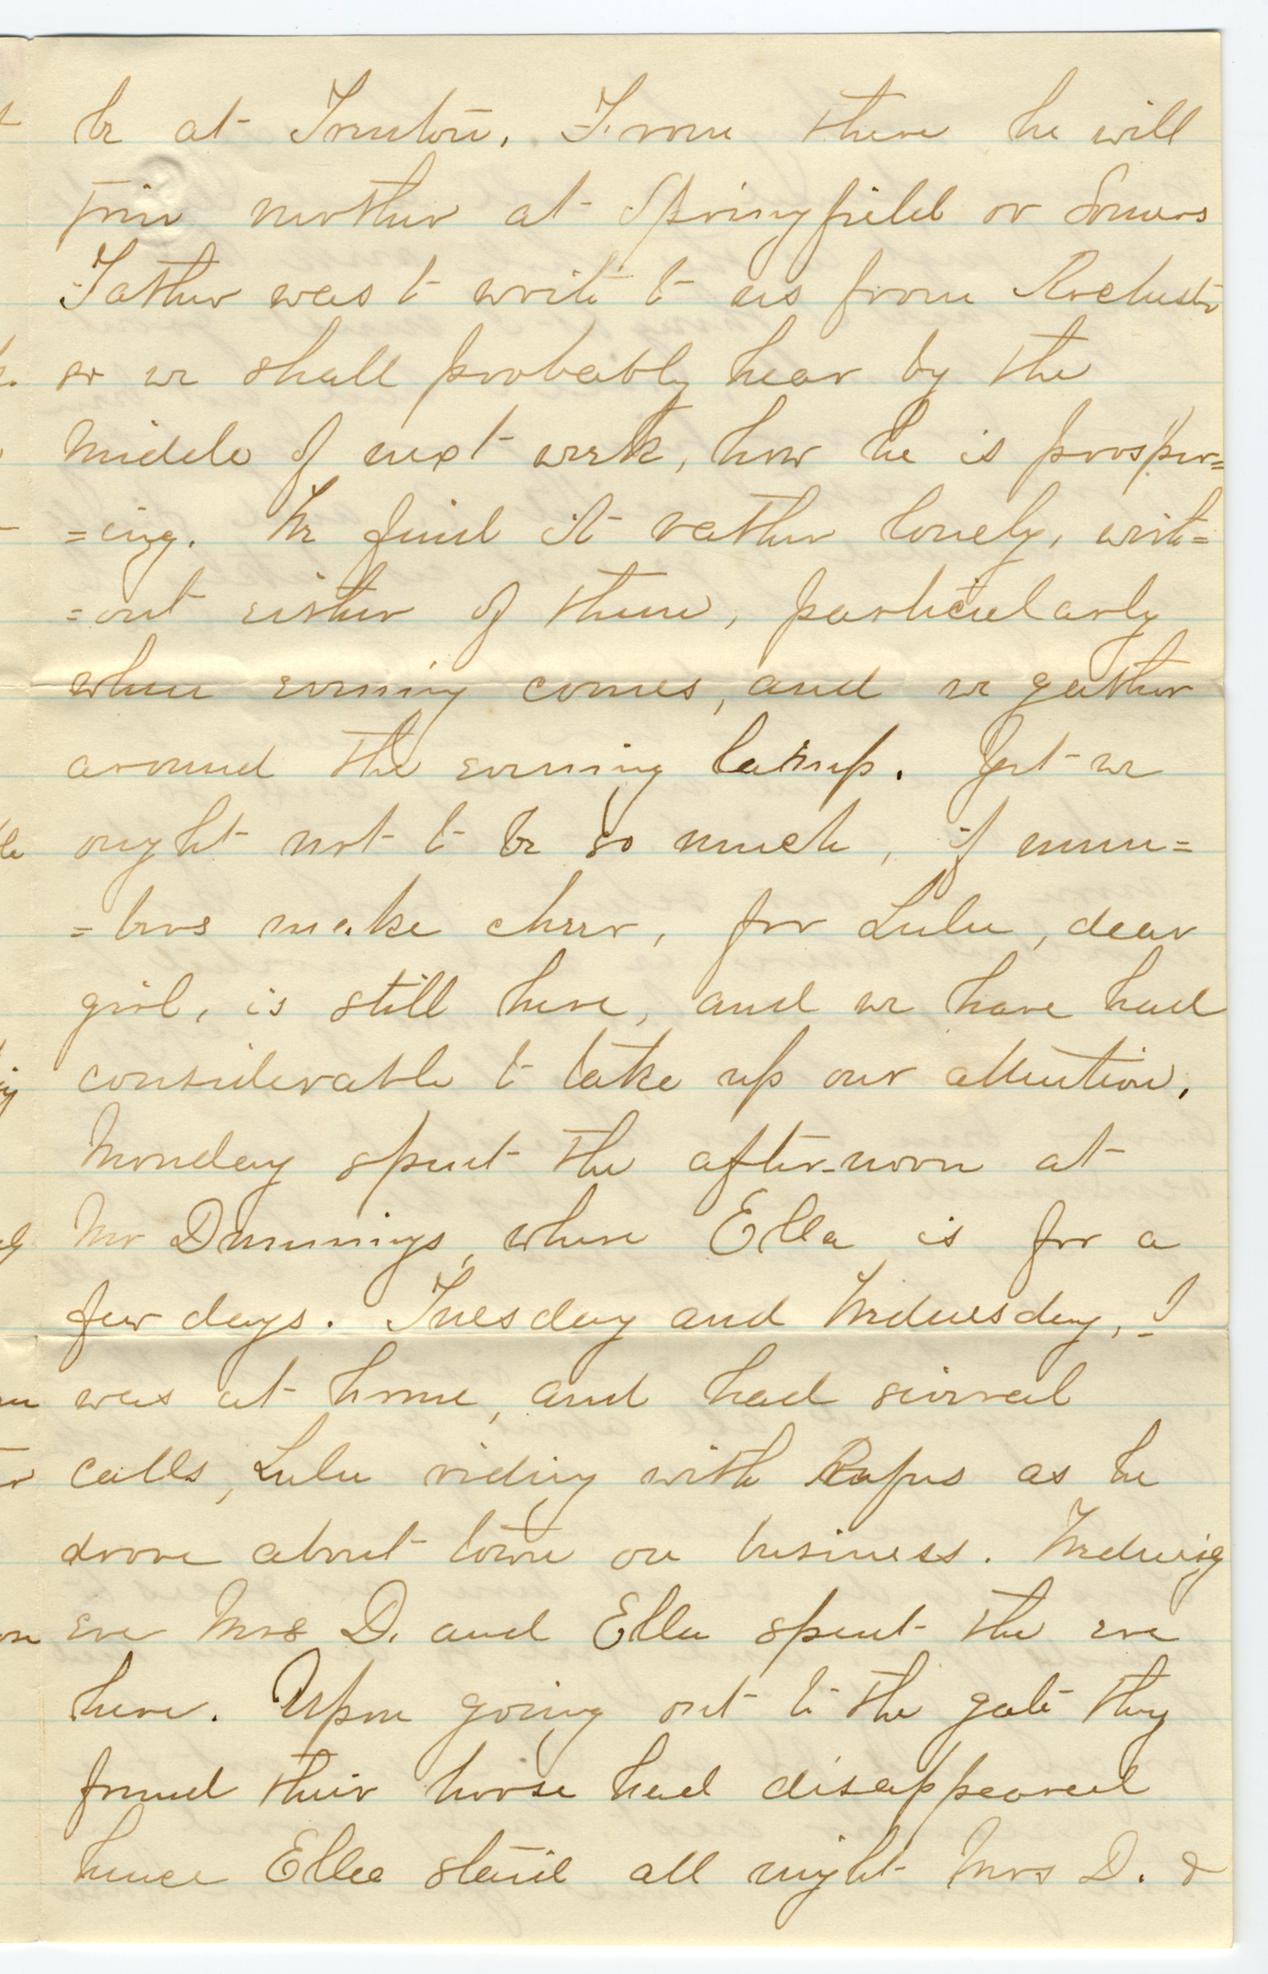 be at Trenton. From there he will
join mother at Springfield or Somers
Father was to write to us from Rochester
so we shall probably hear by the
middle of next week, how he is prosper=
=ing. We find it rather lonely, with=
=out either of them, particularly
when evening comes, and we gather
around the evening lamp. Yet we
ought not to be so much, if num=
=bers make cheer, for Lulu, dear
girl, is still here, and we have had
considerable to take up our attention.
Monday spent the after-noon at
Mr Dummings, where Ella is for a
few days. Tuesday and Wednesday, I
was at home, and had several
calls, Lulu riding with Rufus as he
drove about town on business. Wednesg
eve Mrs D. and Ella spent the eve
here. Upon going out to the gate they
found their horse had disappeared
hence Ella staid all night Mrs D. &